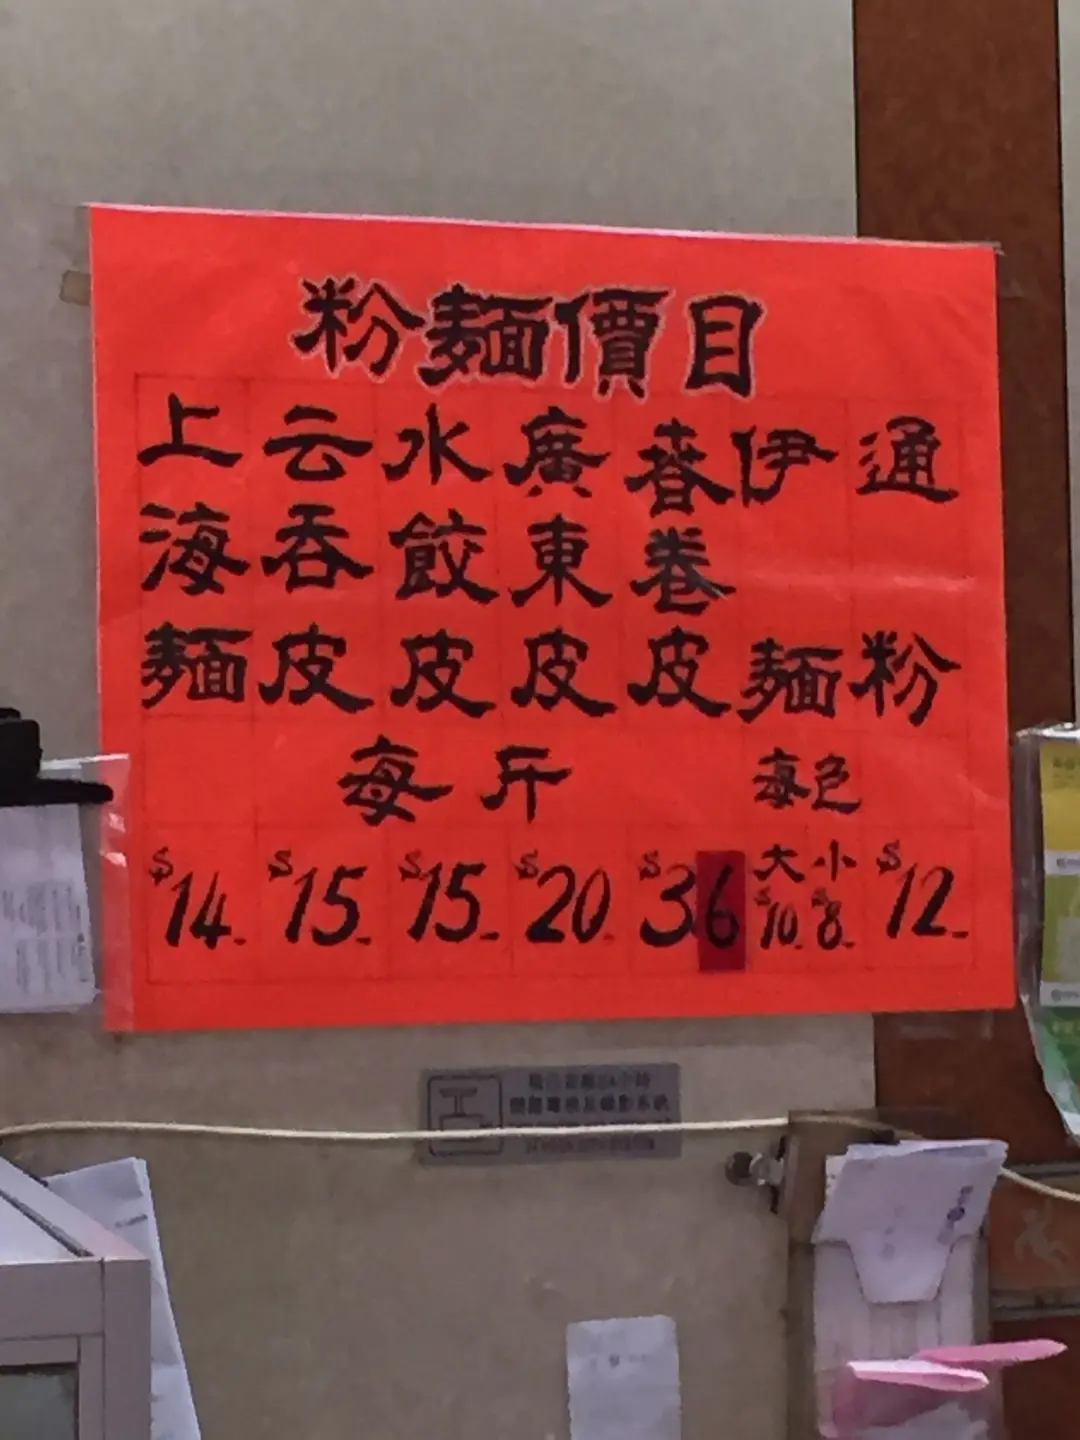 粉麵價目
上海麵
云吞皮
水餃皮
廣東皮
春卷皮
伊麵
通粉
每斤
每包
$14.-
$15.-
$15.-
$20.-
$36
大 小
$10.- $8.-
$12.-